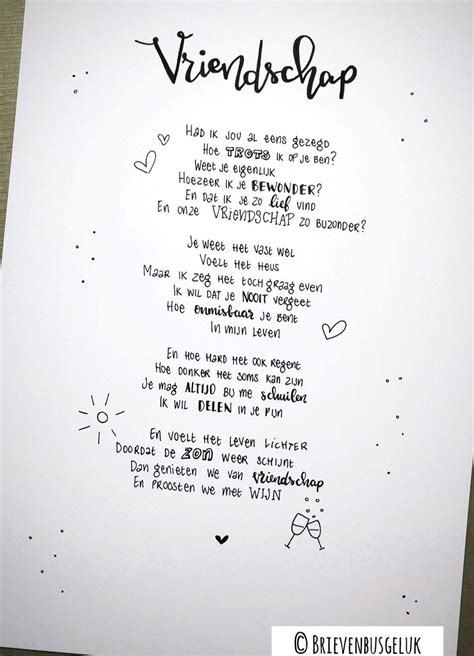 Vriendschap
Had ik jou al eens gezegd
Hoe TROTS ik op je ben?
Weet je eigenlijk
Hoezeer ik je BEWONDER?
En dat ik je zo lief vind
En onze VRIENDSCHAP zo bijzonder?
Je weet het vast wel
Voelt het heus
Maar ik zeg het toch graag even
Ik wil dat je NOOIT vergeet
Hoe onmisbaar je bent
In mijn leven
En hoe hard het ook regent
Hoe donker het soms kan zijn
Je mag ALTIJD bij me schuilen
Ik wil DELEN in je pijn
En voelt het leven lichter
Doordat de ZON weer schijnt
Dan genieten we van vriendschap
En proosten we met WIJN
© Brievenbusgeluk